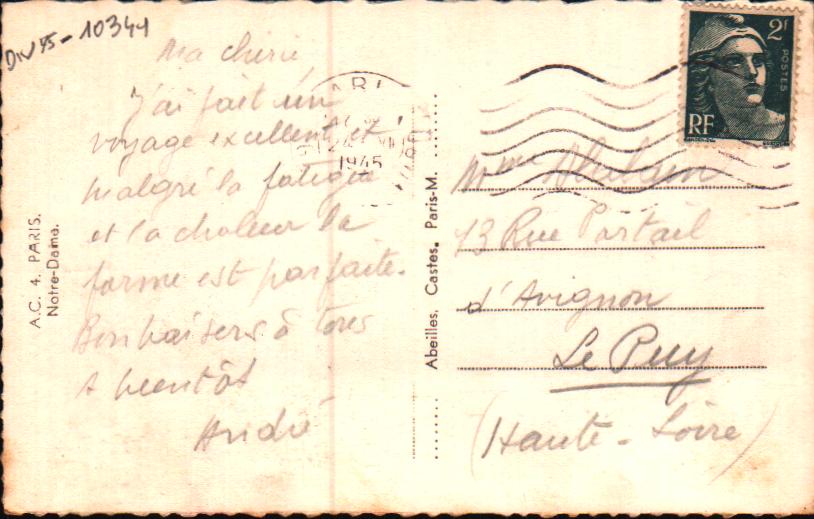 DIV75-10344
Ma chérie,
J'ai fait un
voyage excellent et
malgré la fatigue
et la chaleur la
forme est parfaite.
Bon baisers à tous
A bientôt
André
A.C. 4. PARIS.
Notre-Dame.
Abeilles, Castes, Paris-M.
PARI
24 VII
1945
2F
POSTES
RF
Mme
13 Rue Portail
d'Avignon
Le Puy
(Haute-Loire)